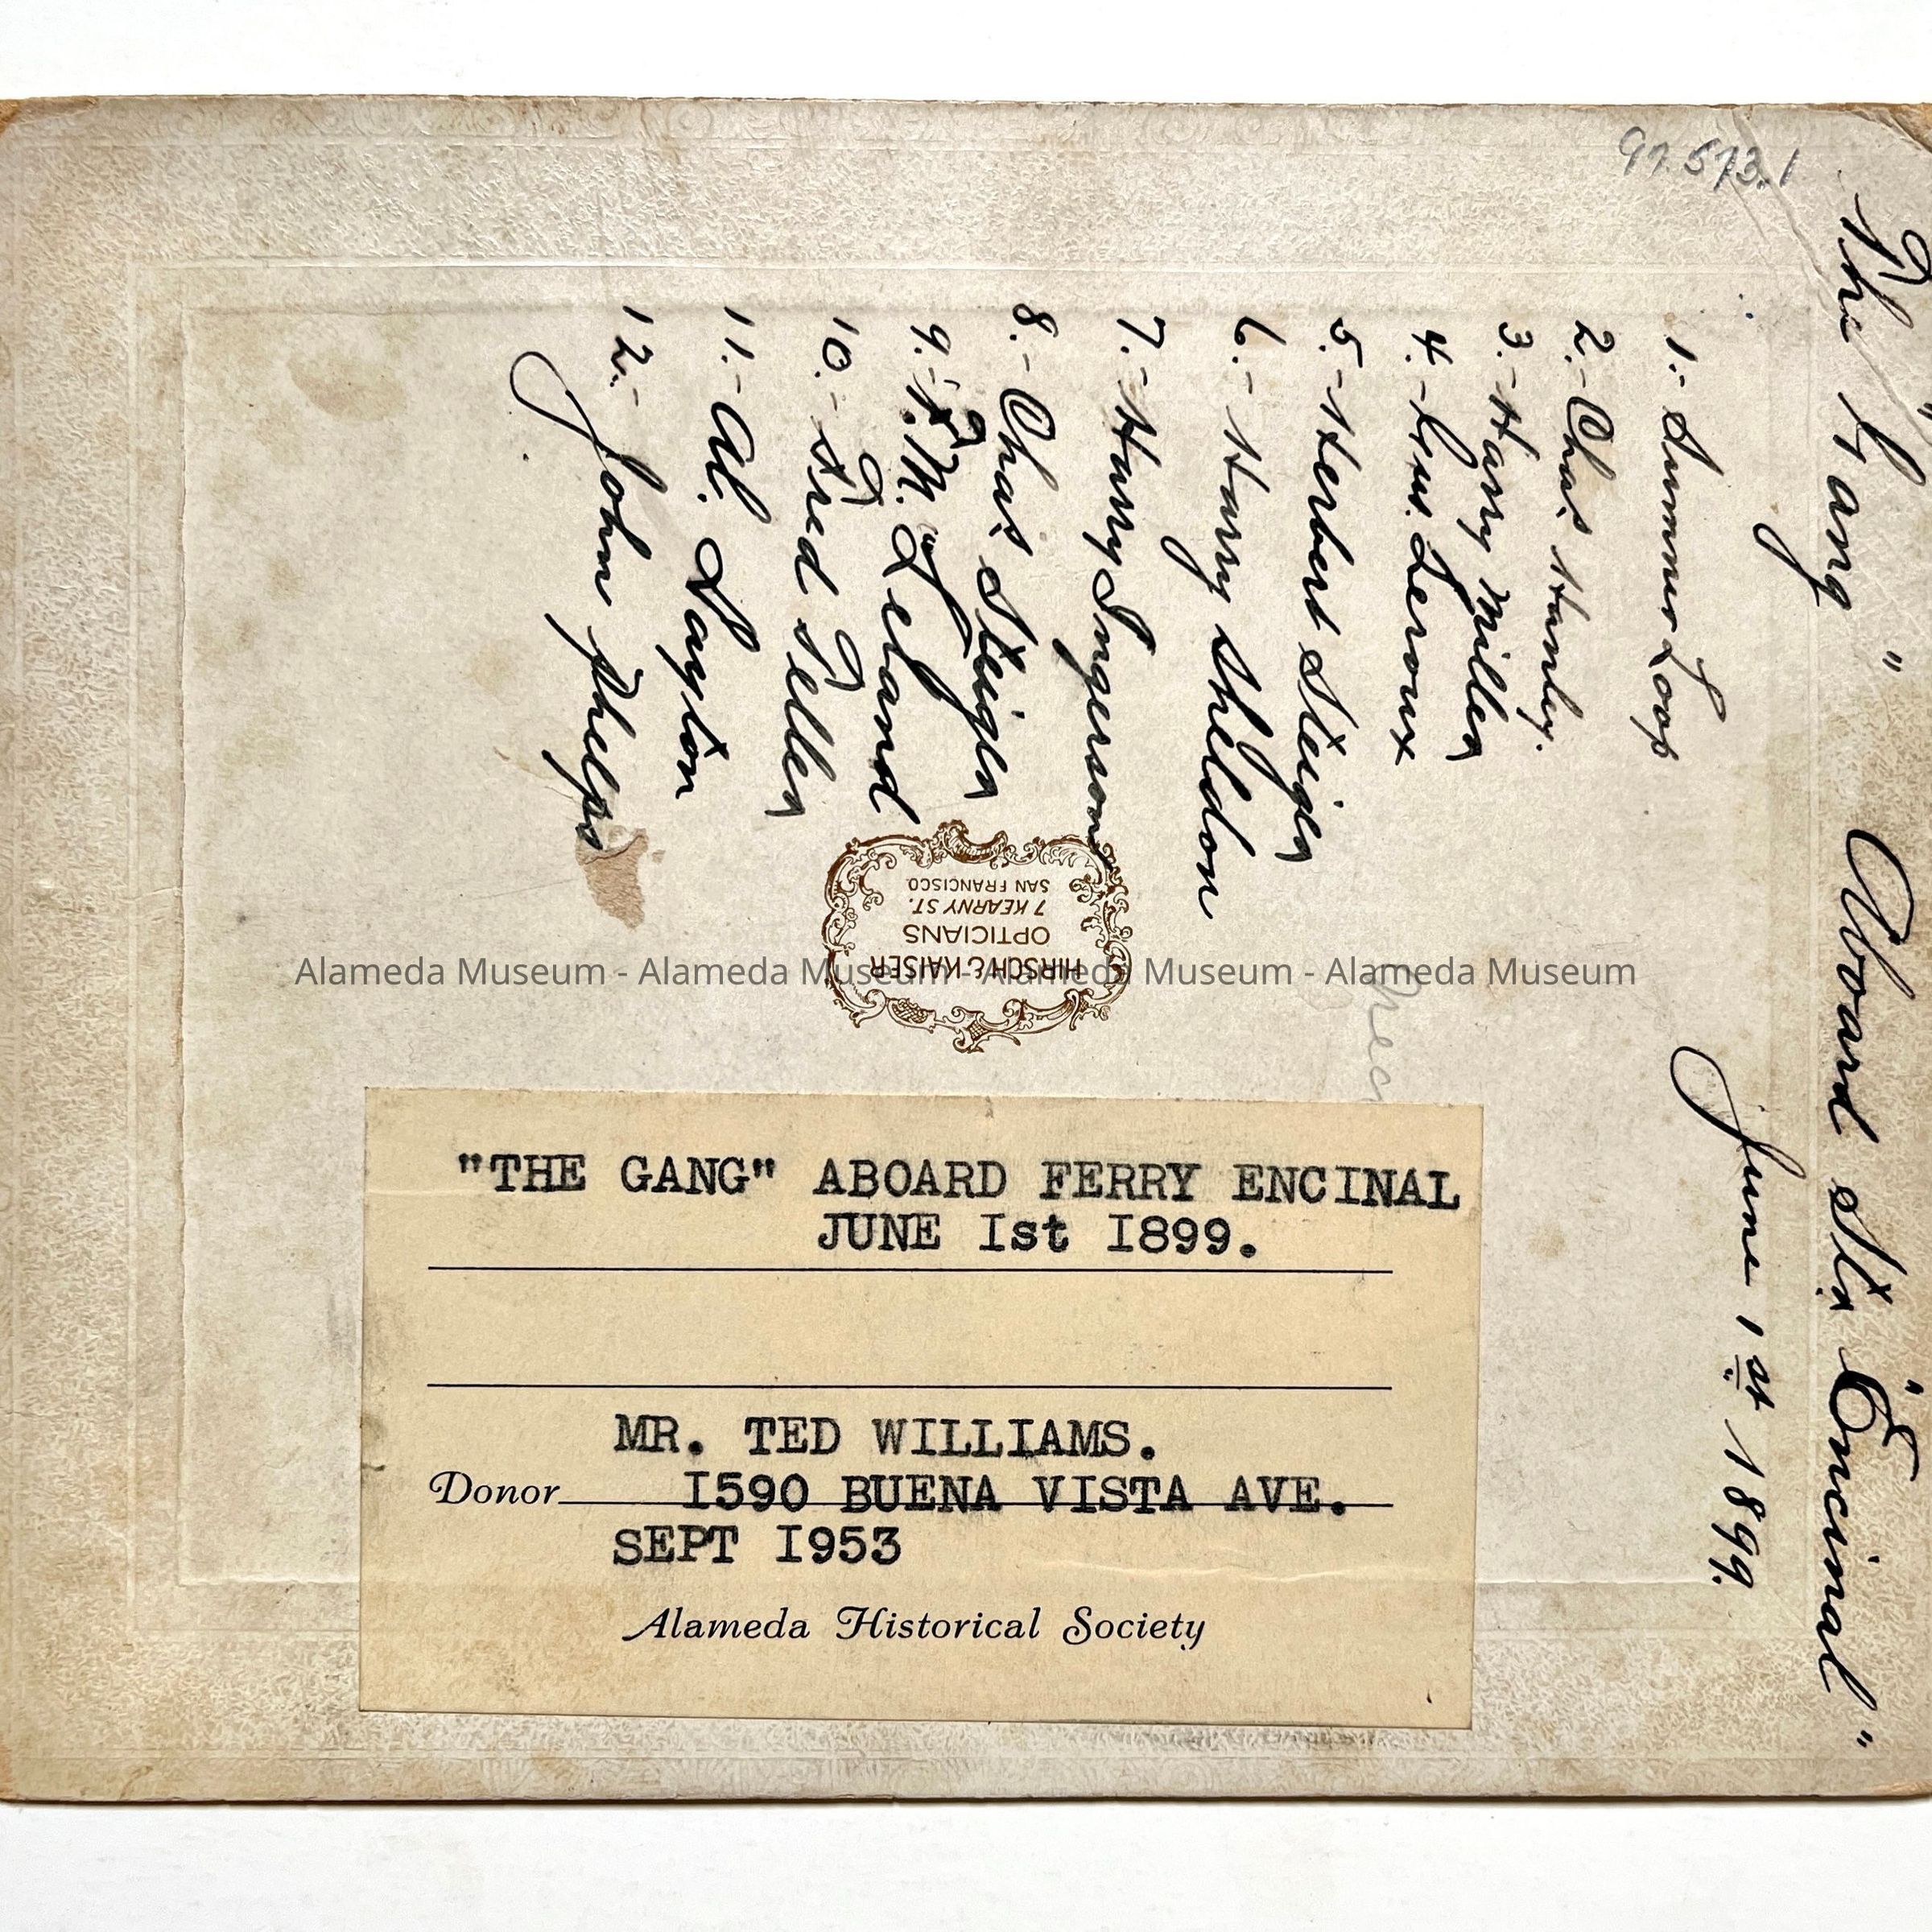 97.573.1
"The Gang" Aboard Str. "Encinal"
June 1st 1899.
1.- Sumner Loop
2.- Chas Hanley.
3.- Harry Miller
4.- Gus. Leroux
5.- Herbert Steiger
6.- Harry Sheldon
7.- Harry Ingerson
8.- Chas Steiger
9.- M. Leland
10.- Fred Teller
11.- Al. Layton
12.- John Phelps
HIRSCH & KAISER
OPTICIANS
7 KEARNY ST.
SAN FRANCISCO
Alameda Museum - Alameda Museum - Alameda Museum - Alameda Museum
"THE GANG" ABOARD FERRY ENCINAL
JUNE Ist I899.
MR. TED WILLIAMS.
Donor I590 BUENA VISTA AVE.
SEPT I953
Alameda Historical Society